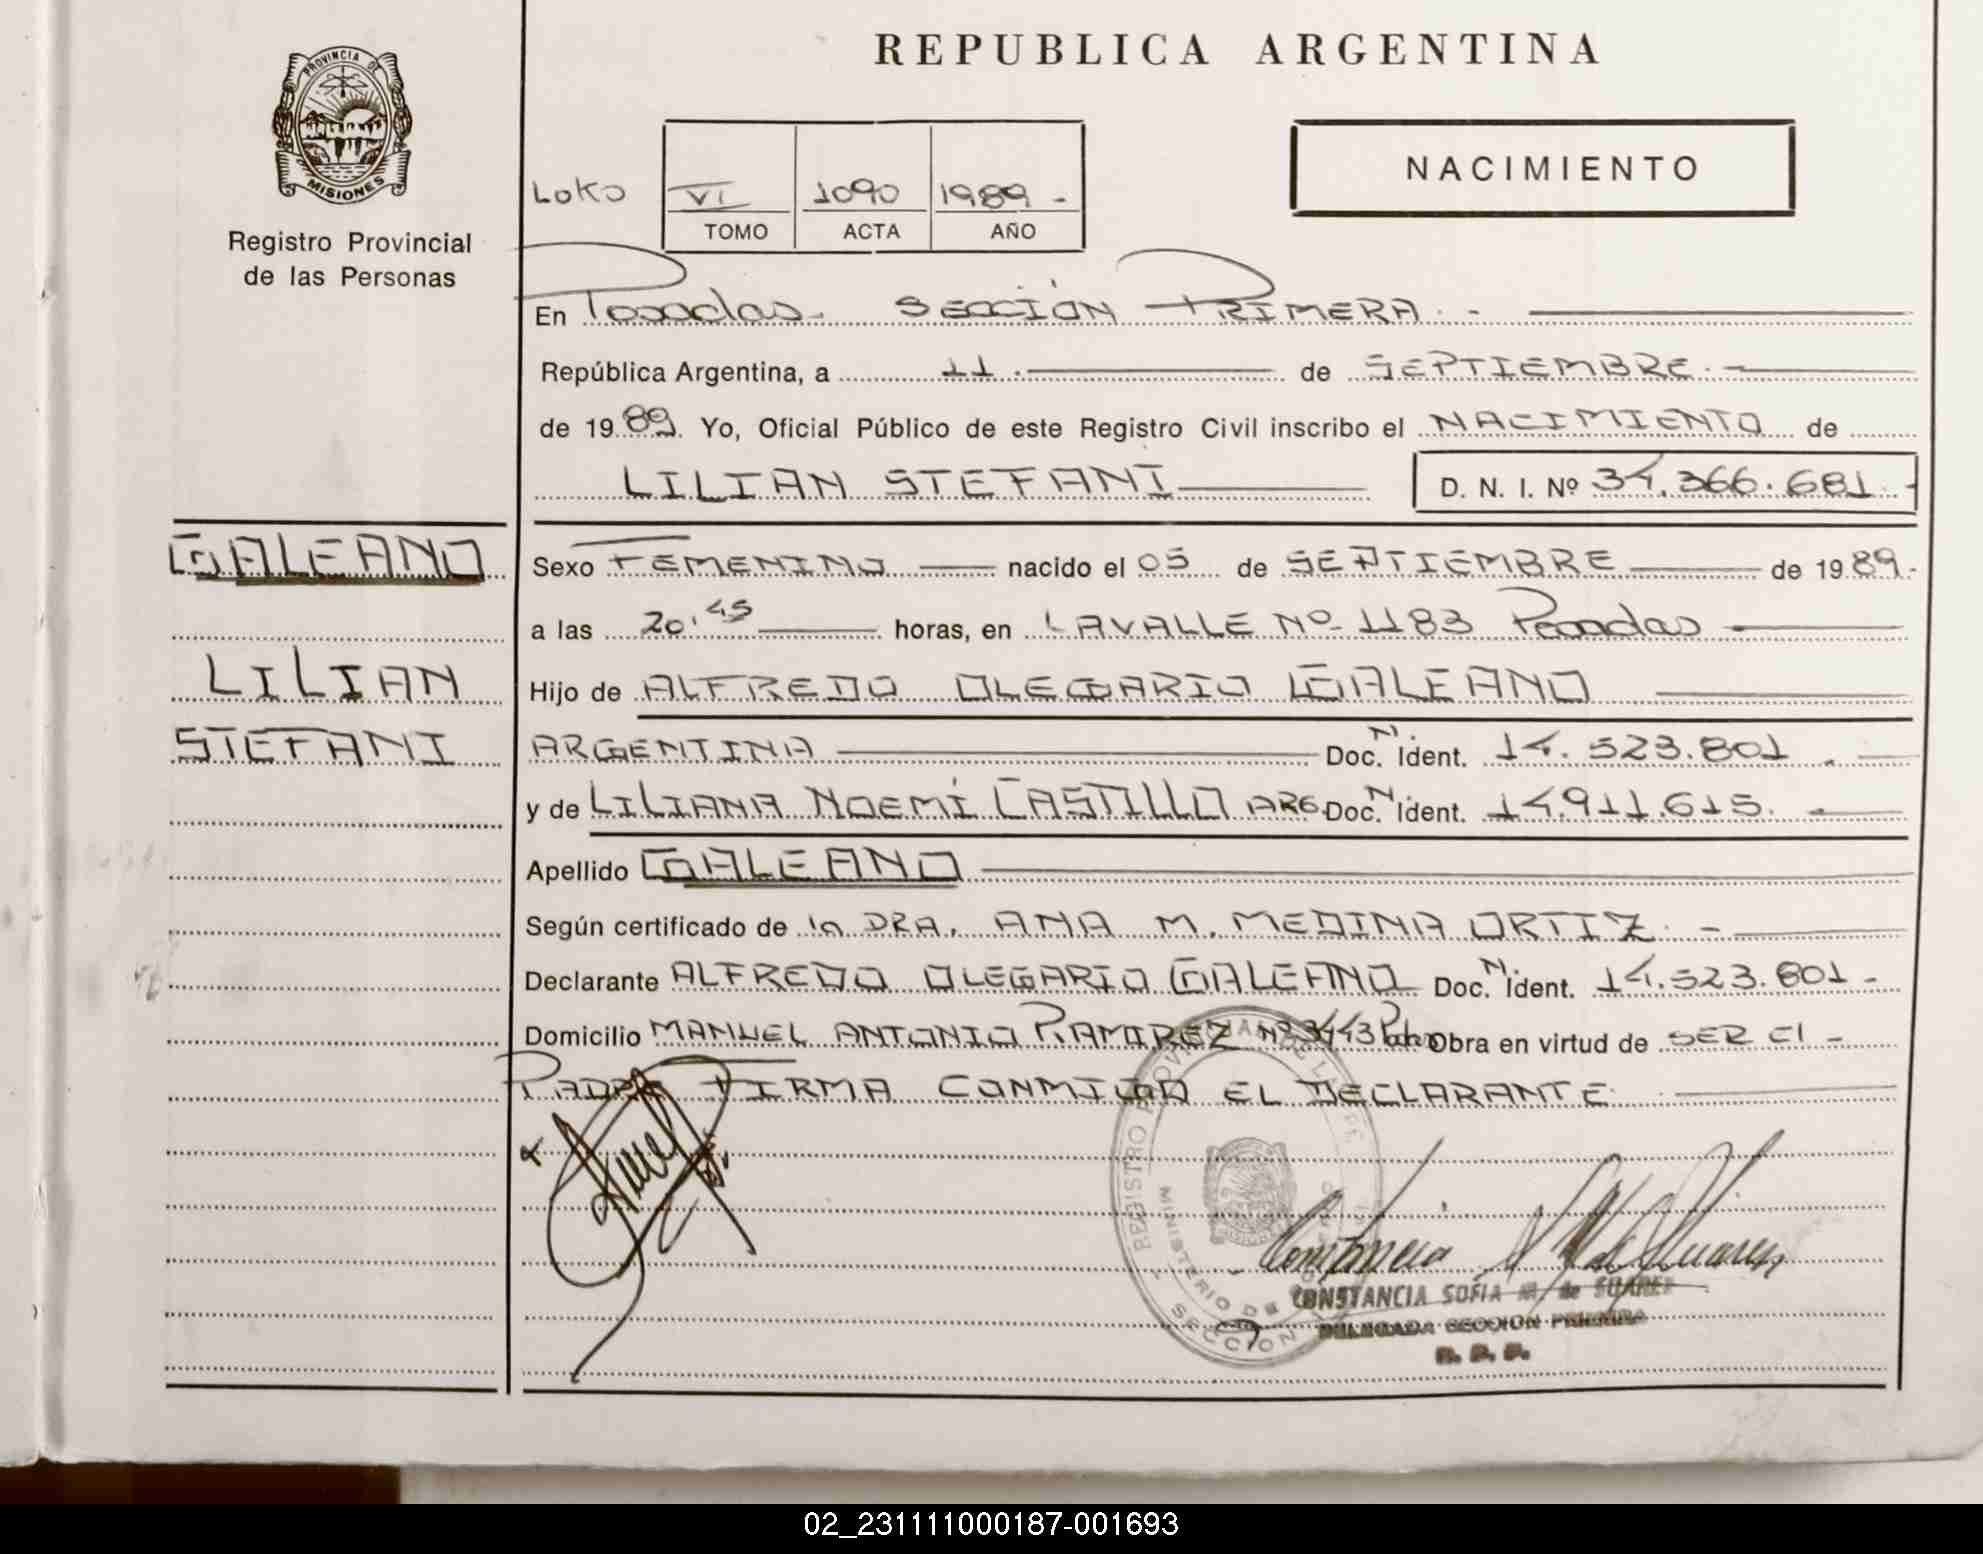 REPUBLICA ARGENTINA
PROVINCIA DE
MISIONES
Registro Provincial
de las Personas
NACIMIENTO
VI 1090 1989 -
TOMO ACTA AÑO
En Posadas - SECCIÓN PRIMERA. -
República Argentina, a 11. de SEPTIEMBRE. -
de 1989. Yo, Oficial Público de este Registro Civil inscribo el NACIMIENTO de
LILIAN STEFANI D. N. I. Nº 34.366.681. -
GALEANO
LILIAN
STEFANI
Sexo FEMENINO nacido el 05 de SEPTIEMBRE de 1989.
a las 20,45 horas, en LAVALLE Nº 1183 Posadas
Hijo de ALFREDO OLEGARIO GALEANO
ARGENTINA Doc. N. Ident. 14.523.801. -
y de LILIANA NOEMÍ CASTILLO ARG Doc. N. Ident. 14.911.615. -
Apellido GALEANO
Según certificado de la DRA. ANA M. MEDINA ORTIZ. -
Declarante ALFREDO OLEGARIO GALEANO Doc. N. Ident. 14.523.801 -
Domicilio MANUEL ANTONIO RAMIREZ Nº 3443 Obra en virtud de SER EL -
PADRE FIRMA CONMIGO EL DECLARANTE
REGISTRO PROVINCIAL DE LAS PE
MINISTERIO DE GOBIERNO
SECCION 1
CONSTANCIA SOFIA M. de SUAREZ
DELEGADA SECCION PRIMERA
R. P. P.
02_231111000187-001693